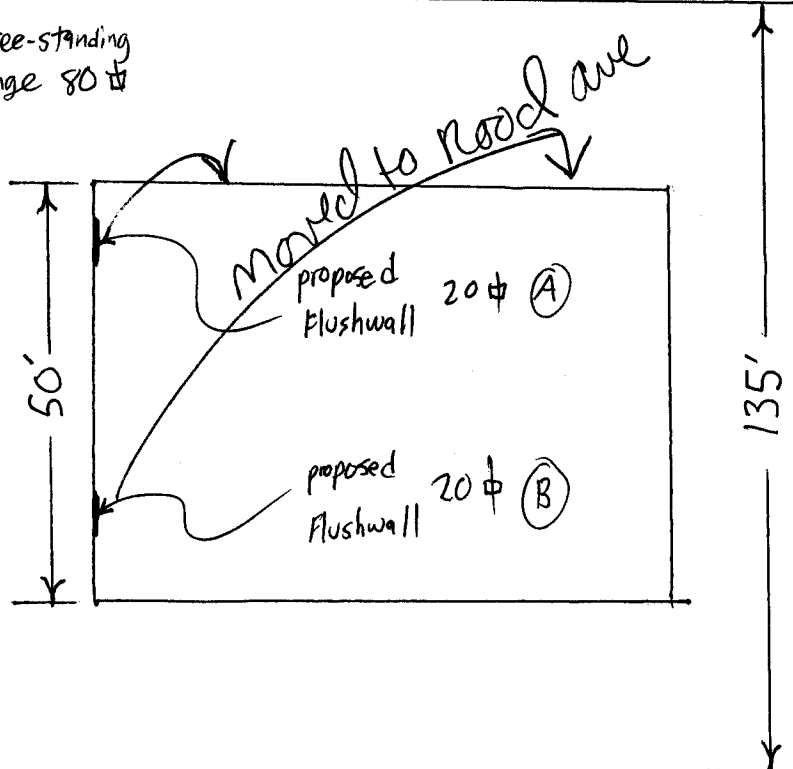 ee-standing
nge 80 ⏍
moved to Rood ave
proposed
Flushwall 20 ⏍ A
50'
135'
proposed
Flushwall 20 ⏍ B